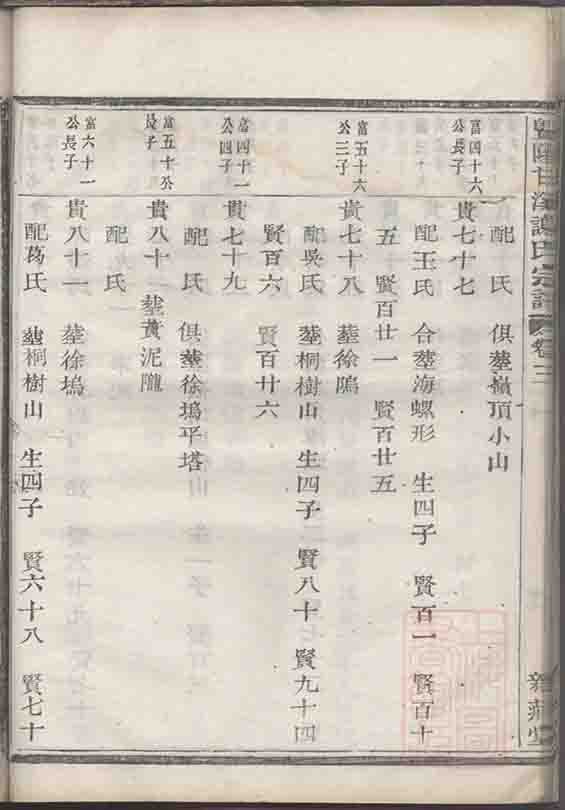 氏宗譜 卷三
配 氏 俱塟嶺頂小山
富四十六
公長子
貴七十七
配王氏 合塟海螺形 生四子 賢百一 賢百十
五 賢百廿一 賢百廿五
富五十六
公三子
貴七十八 塟徐隝
配吳氏 塟桐樹山 生四子 賢八十 賢九十四
賢百六 賢百廿六
富四十一
公四子
貴七十九
配 氏 俱塟徐塢平塔
富五十公
長子
貴八十 塟黄泥隴
配 氏
富六十一
公長子
貴八十一 塟徐塢
配葛氏 塟桐樹山 生四子 賢六十八 賢七十